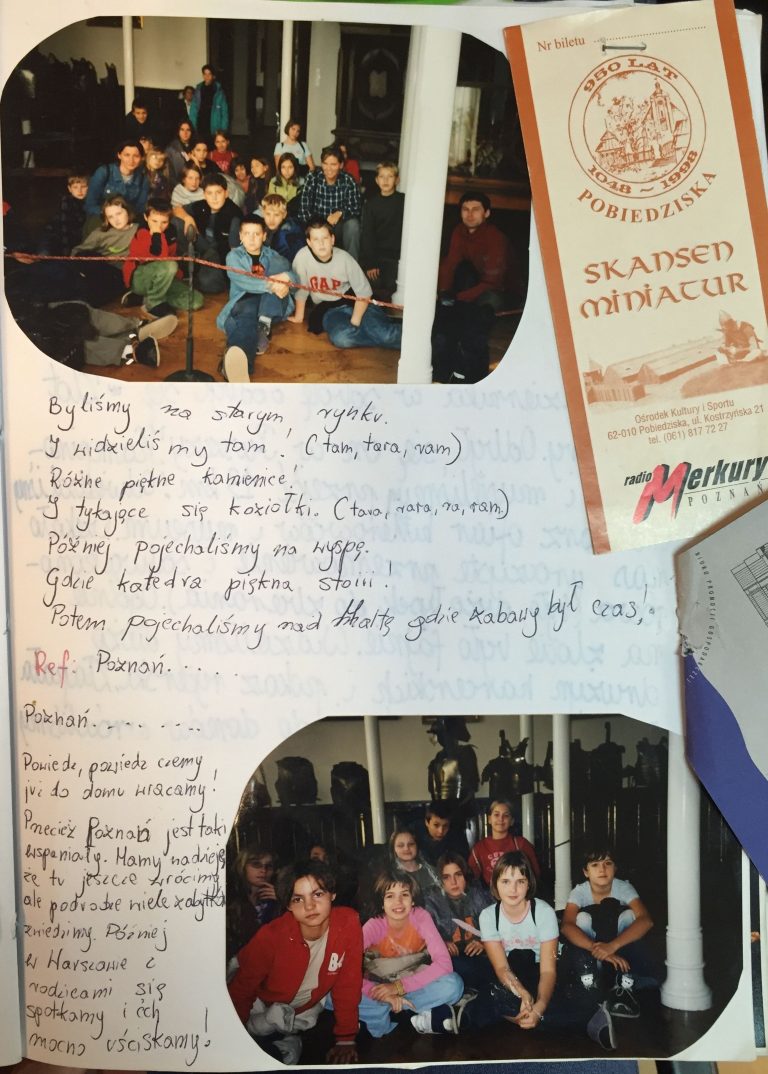 Nr biletu
950 LAT
1048 ~ 1998
POBIEDZISKA
SKANSEN
MINIATUR
Ośrodek Kultury i Sportu
62-010 Pobiedziska, ul. Kostrzyńska 21
tel. (061) 817 72 27
radio Merkury
POZNAŃ
GAP
Byliśmy na starym rynku.
I widzieliśmy tam! (tam, tara, ram)
Różne piękne kamienice!
I tykające się koziołki. (tara, rara, ra, ram)
Później pojechaliśmy na wyspę.
Gdzie katedra piękna stoiii!
Potem pojechaliśmy nad Maltę gdzie zabawy był czas!
Ref: Poznań...
Poznań. . . . . . . .
Powiedz, powiedz czemy
już do domu wracamy!
Przecież Poznań jest taki
wspaniały. Mamy nadzieję
że tu jeszcze wrócimy
ale po drodze wiele zabytków
zwiedzimy. Później
w Warszawie z
rodzicami się
spotkamy i ich
mocno uściskamy!
BIURO PROMOCJI